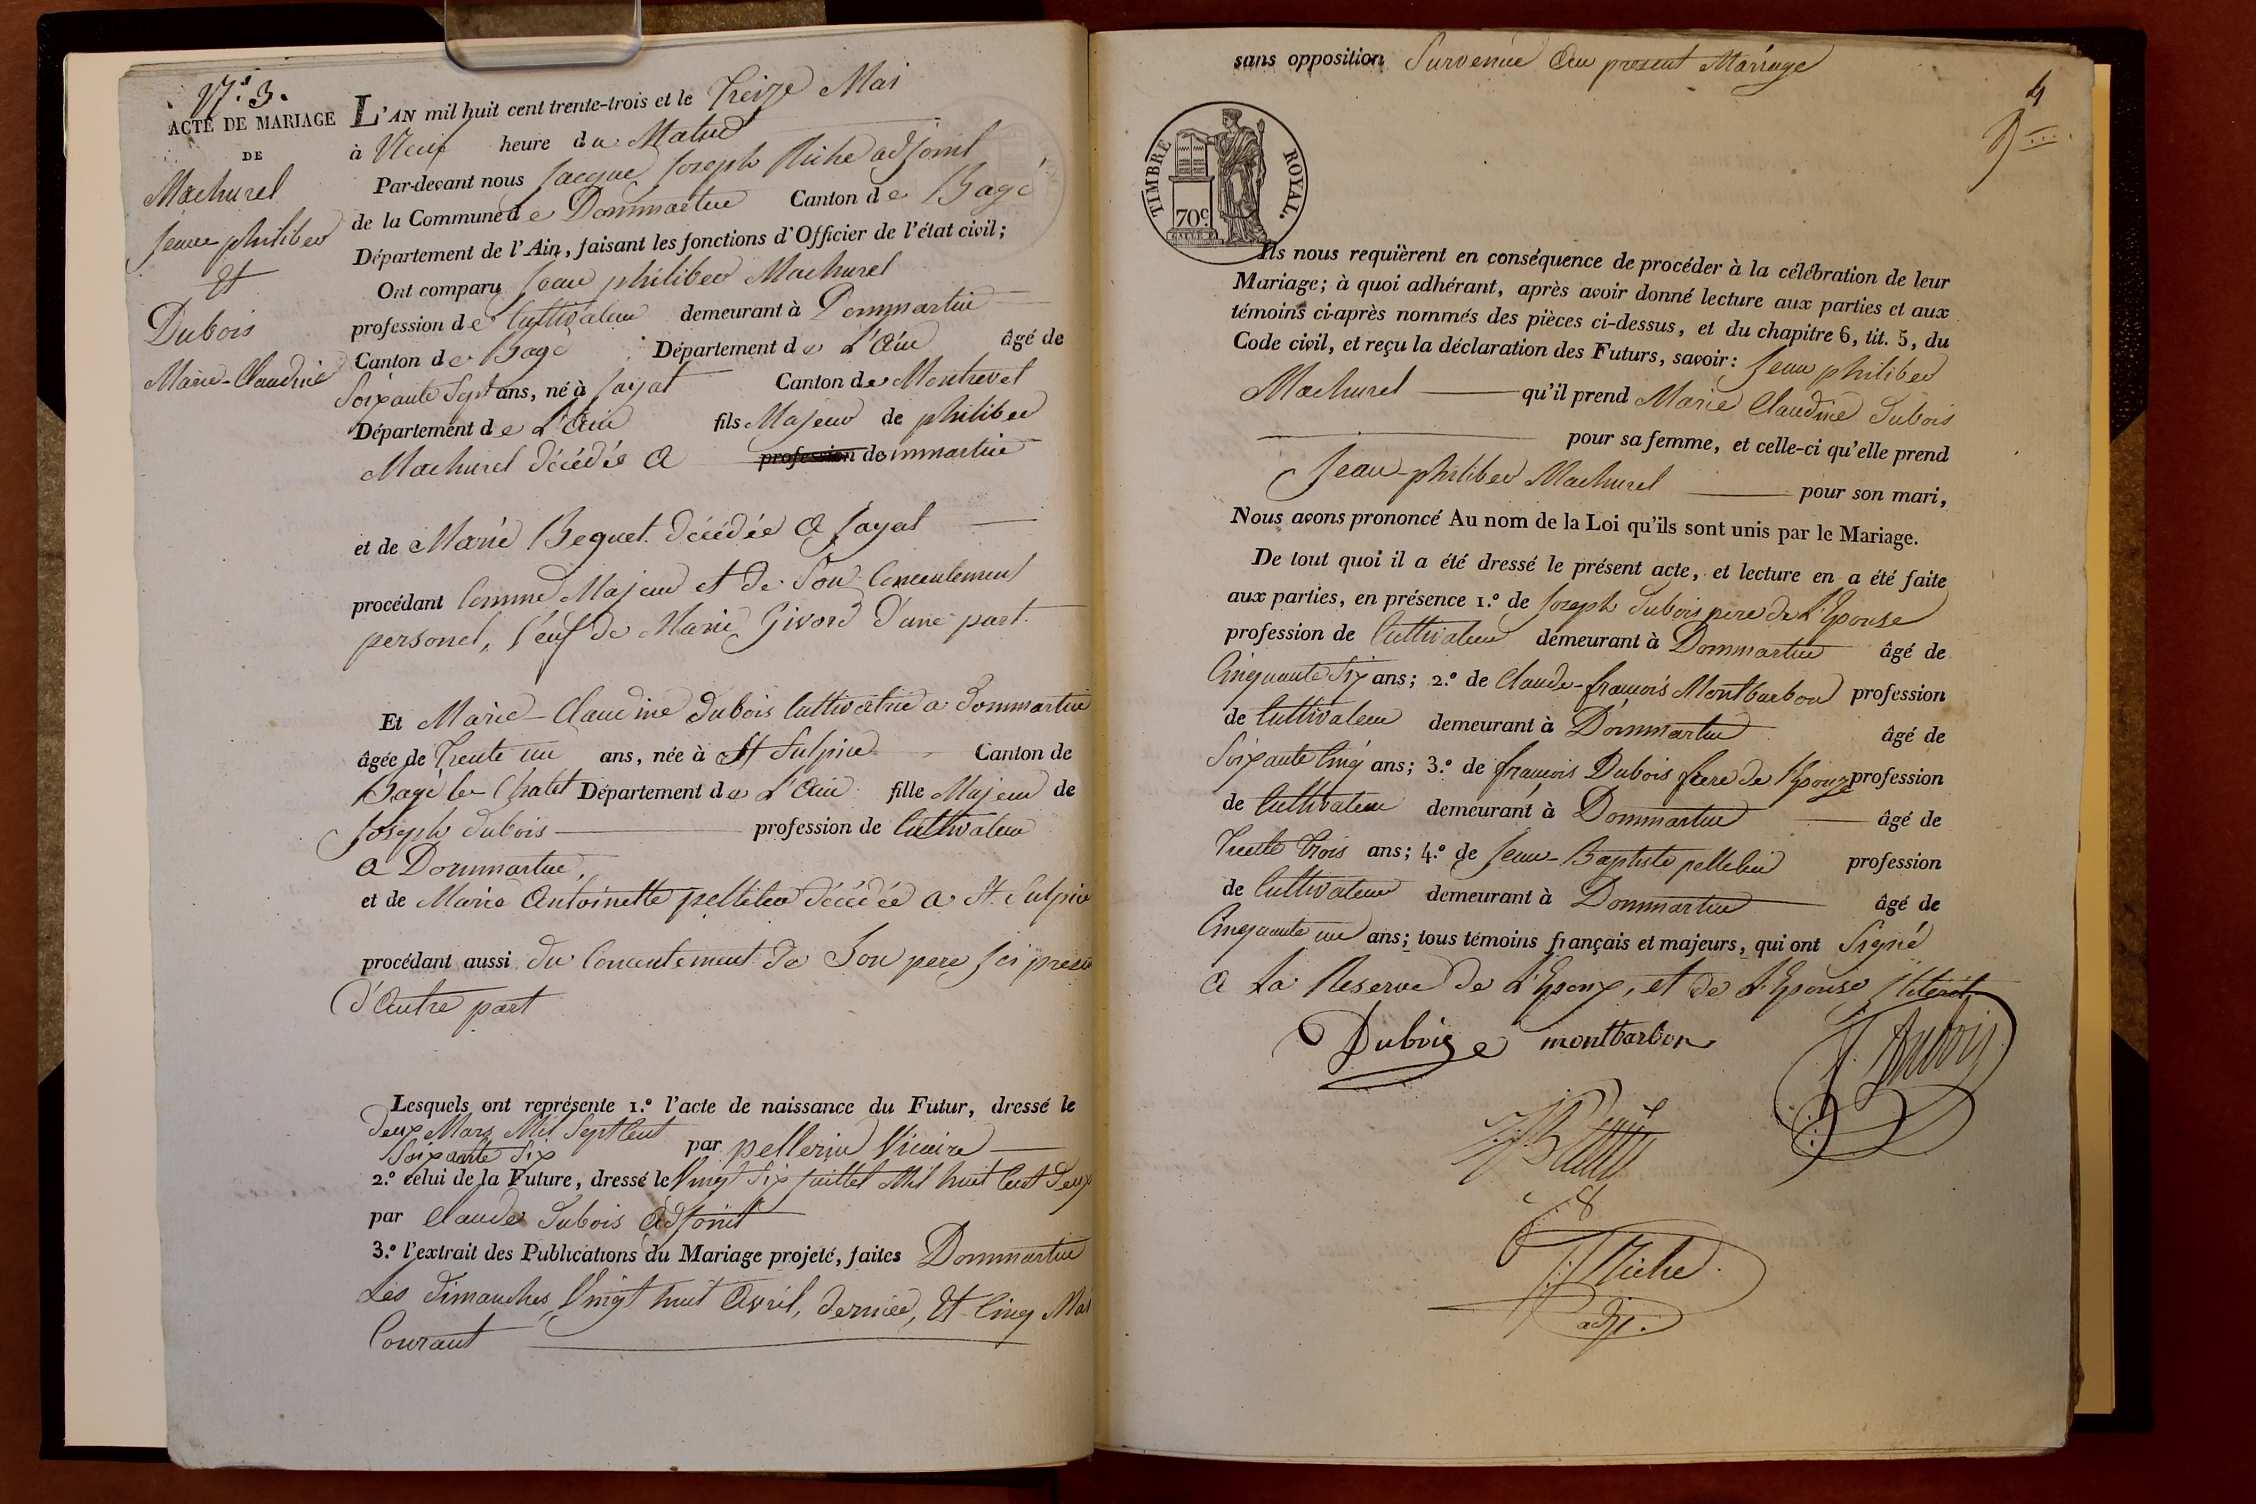 N.° 3.
ACTE DE MARIAGE
DE
Machurel
Jean philiber
Et
Dubois
Marie-Claudine
L'AN mil huit cent trente-trois et le Treize Mai
à Neuf heure du Matin
Par-devant nous Jacque Joseph Riche adjoint
de la Commune de Dommartin Canton de Bagé
Département de l'Ain, faisant les fonctions d'Officier de l'état civil;
Ont comparu Jean philiber Machurel
profession de Cultivateur demeurant à Dommartin
Canton de Bagé Département de L'Ain âgé de
Soixante Sept ans, né à Jayat Canton de Montrevel
Département de L'Ain fils Majeur de philiber
Machurel décédée a profession dommartin
et de Marie Beguet décédée a Jayat
procédant Comme Majeur et de Son Concentement
personel, Veuf de Marie Givord d'une part.
Et Marie-Claudine dubois Cultivatrice a dommartin
âgée de Trente un ans, née à St Sulpice Canton de
Bagé le Chatel Département de L'Ain fille Majeur de
Joseph dubois profession de Cultivateur
a Dommartin,
et de Marie Antoinette pelletier décédée a St. Sulpice
procédant aussi du Concentement de Son pere ici present
d'Autre part
Lesquels ont représente 1.° l'acte de naissance du Futur, dressé le
deux Mars Mil Sept Cent
Soixante Six par pellerin Vicaire
2.° celui de la Future, dressé le Vingt Six juillet Mil huit Cent deux
par Claude Dubois Adjoint
3.° l'extrait des Publications du Mariage projeté, faites Dommartin
Les dimanches Vingt huit Avril, dernier, Et Cinq Mai
Courant
sans opposition Survenue Au present Mariage
4
TIMBRE ROYAL.
70c
Ils nous requièrent en conséquence de procéder à la célébration de leur
Mariage; à quoi adhérant, après avoir donné lecture aux parties et aux
témoins ci-après nommés des pièces ci-dessus, et du chapitre 6, tit. 5, du
Code civil, et reçu la déclaration des Futurs, savoir: Jean philiber
Machurel qu'il prend Marie Claudine Dubois
pour sa femme, et celle-ci qu'elle prend
Jean-philiber Machurel pour son mari,
Nous avons prononcé Au nom de la Loi qu'ils sont unis par le Mariage.
De tout quoi il a été dressé le présent acte, et lecture en a été faite
aux parties, en présence 1.° de Joseph Dubois pere de L'Epouse
profession de Cultivateur demeurant à Dommartin âgé de
Cinquante Six ans; 2.° de Claude-françois Montbarbon profession
de Cultivateur demeurant à Dommartin âgé de
Soixante Cinq ans; 3.° de françois Dubois frere de l'Epouze profession
de Cultivateur demeurant à Dommartin âgé de
Trente Trois ans; 4.° de Jean-Baptiste pelletier profession
de Cultivateur demeurant à Dommartin âgé de
Cinquante un ans; tous témoins français et majeurs, qui ont Signé
a La Reserve de L'Epoux, et de L'Epouse
Duboize montbarbon f. Dubois
J. J. Riche
adj.